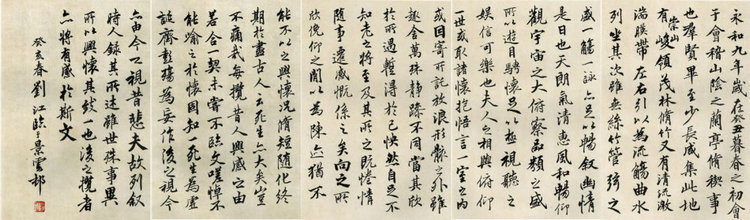 永和九年歲在癸丑暮春之初會
于會稽山陰之蘭亭脩稧事
也群賢畢至少長咸集此地
有崇山峻領茂林脩竹又有清流激
湍暎帶左右引以為流觴曲水
列坐其次雖無絲竹管弦之
盛一觴一詠亦足以暢敘幽情
是日也天朗氣清惠風和暢仰
觀宇宙之大俯察品類之盛
所以遊目騁懷足以極視聽之
娛信可樂也夫人之相與俯仰
一世或取諸懷抱悟言一室之內
或因寄所託放浪形骸之外雖
趣舍萬殊靜躁不同當其欣
於所遇蹔得於己怏然自足不
知老之將至及其所之既惓情
隨事遷感慨係之矣向之所
欣俛仰之閒以為陳迹猶不
能不以之興懷況脩短隨化終
期於盡古人云死生亦大矣豈
不痛哉每攬昔人興感之由
若合一契未嘗不臨文嗟悼不
能喻之於懷固知一死生為虛
誕齊彭殤為妄作後之視今
亦由今之視昔悲夫故列敘
時人錄其所述雖世殊事異
所以興懷其致一也後之攬者
亦將有感於斯文
癸亥春劉江臨於景雲邨